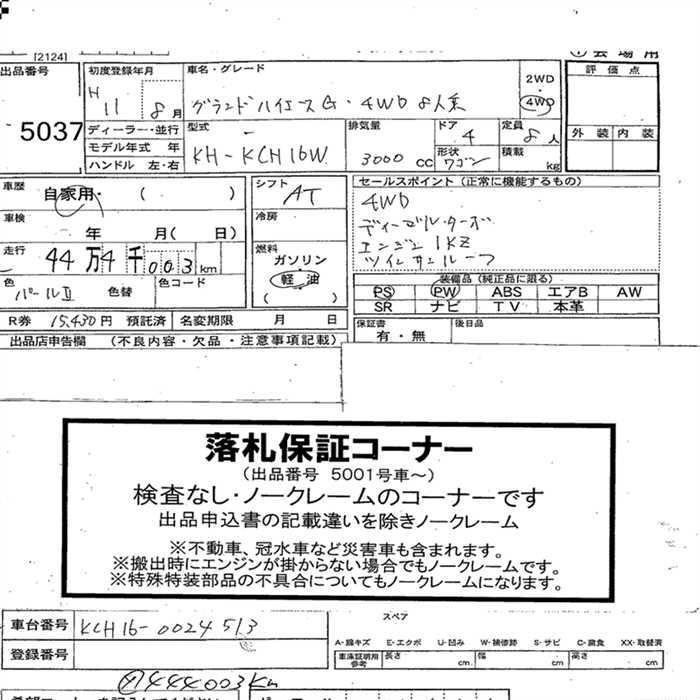 [2124]
出品番号
5037
初度登録年月
H 11 8月
車名・グレード
グランドハイエースG・4WD 8人乗
2WD
4WD
評価点
外装 内装
ディーラー・並行
モデル年式 年
ハンドル 左・右
型式
KH-KCH16W
排気量
3000 cc
ドア
4
形状
ワゴン
定員
8人
積載
kg
車歴
自家用・( )
車検
年 月( 日)
走行
44万4千003km
色
パールII 色替
色コード
シフト
AT
冷房
燃料
ガソリン
軽油
( )
セールスポイント (正常に機能するもの)
4WD
ディーゼルターボ
エンジン1KZ
ツインサンルーフ
装備品 (純正品に限る)
PS PW ABS エアB AW
SR ナビ TV 本革
R券 15,430円 預託済 名変期限 月 日
保証書
有・無
後日品
出品店申告欄 (不良内容・欠品・注意事項記載)
落札保証コーナー
(出品番号 5001号車~)
検査なし・ノークレームのコーナーです
出品申込書の記載違いを除きノークレーム
※不動車、冠水車など災害車も含まれます。
※搬出時にエンジンが掛からない場合でもノークレームです。
※特殊特装部品の不具合についてもノークレームになります。
車台番号 KCH16-0024513
登録番号
スペア
A-線キズ E-エクボ U-凹み W-補修跡 S-サビ C-腐食 XX-取替済
車庫証明用参考 長さ cm 幅 cm 高さ cm
444003Km